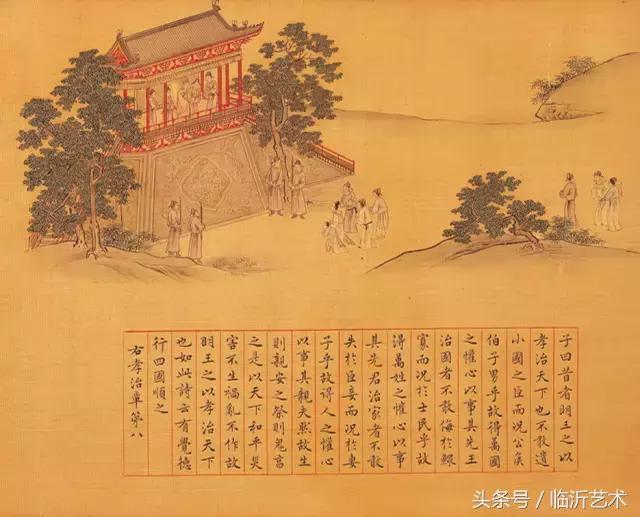 子曰昔者明王之以
孝治天下也不敢遺
小國之臣而況公侯
伯子男乎故得萬國
之懽心以事其先王
治國者不敢侮於鰥
寡而況於士民乎故
得萬姓之懽心以事
其先君治家者不敢
失於臣妾而況於妻
子乎故得人之懽心
以事其親夫然故生
則親安之祭則鬼享
之是以天下和平災
害不生禍亂不作故
明王之以孝治天下
也如此詩云有覺德
行四國順之
右孝治章第八
头条号 / 临沂艺术